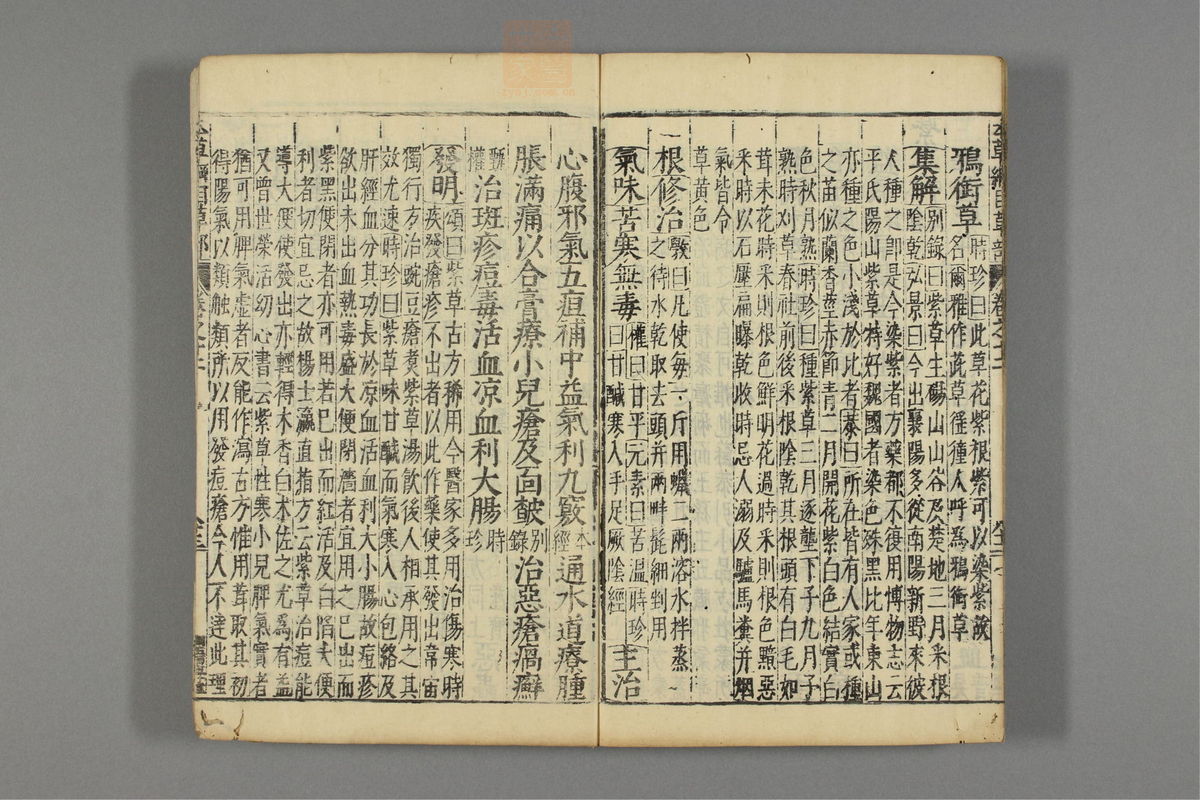 鴉銜草 時珍曰此草花紫根紫可以染紫故
名爾雅作茈草猺獞人呼爲鴉銜草
集解 别録曰紫草生碭山山谷及楚地三月采根
陰乾弘景曰今出襄陽多從南陽新野來彼
人種之卽是今染紫者方藥都不復用博物志云
平氏陽山紫草特好魏國者染色殊黑比年東山
亦種之色小淺於北者恭曰所在皆有人家或種
之苗似蘭香莖赤節青二月開花紫白色結實白
色秋月熟時珍曰種紫草三月逐壟下子九月子
熟時刈草春社前後采根陰乾其根頭有白毛如
茸未花時采則根色鮮明花過時采則根色黯惡
采時以石壓扁曝乾收時忌人溺及驢馬糞并烟
氣皆令
草黄色
根修治 斆曰凡使每一斤用蠟二兩溶水拌蒸
之待水乾取去頭并兩畔髭細剉用
氣味苦寒無毒 權曰甘平元素曰苦温時珍
曰甘鹹寒入手足厥陰經 主治
心腹邪氣五疸補中益氣利九竅本經通水道療腫
脹滿痛以合膏療小兒瘡及面皶别録治惡瘡瘑癬
甄權治斑疹痘毒活血凉血利大腸時珍
發明 頌曰紫草古方稀用今醫家多用治傷寒時
疾發瘡疹不出者以此作藥使其發出韋宙
獨行方治豌豆瘡煑紫草湯飲後人相承用之其
效尤速時珍曰紫草味甘鹹而氣寒入心包絡及
肝經血分其功長於凉血活血利大小腸故痘疹
欲出未出血熱毒盛大便閉濇者宜用之已出而
紫黑便閉者亦可用若已出而紅活及白陷大便
利者切宜忌之故楊士瀛直指方云紫草治痘能
導大便使發出亦輕得木香白术佐之尤爲有益
又曾世榮活幼心書云紫草性寒小兒脾氣實者
猶可用脾氣虚者反能作瀉古方惟用茸取其初
得陽氣以類觸類所以用發痘瘡今人不達此理